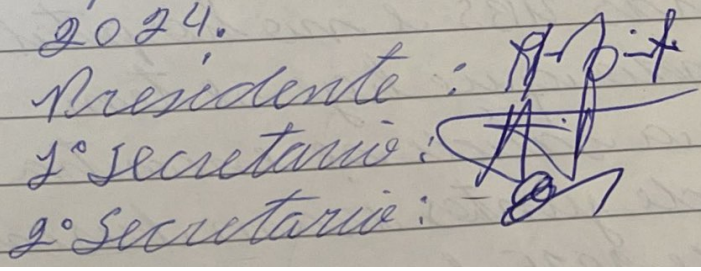 2024.
Presidente:
1º Secretario:
2º Secretario: